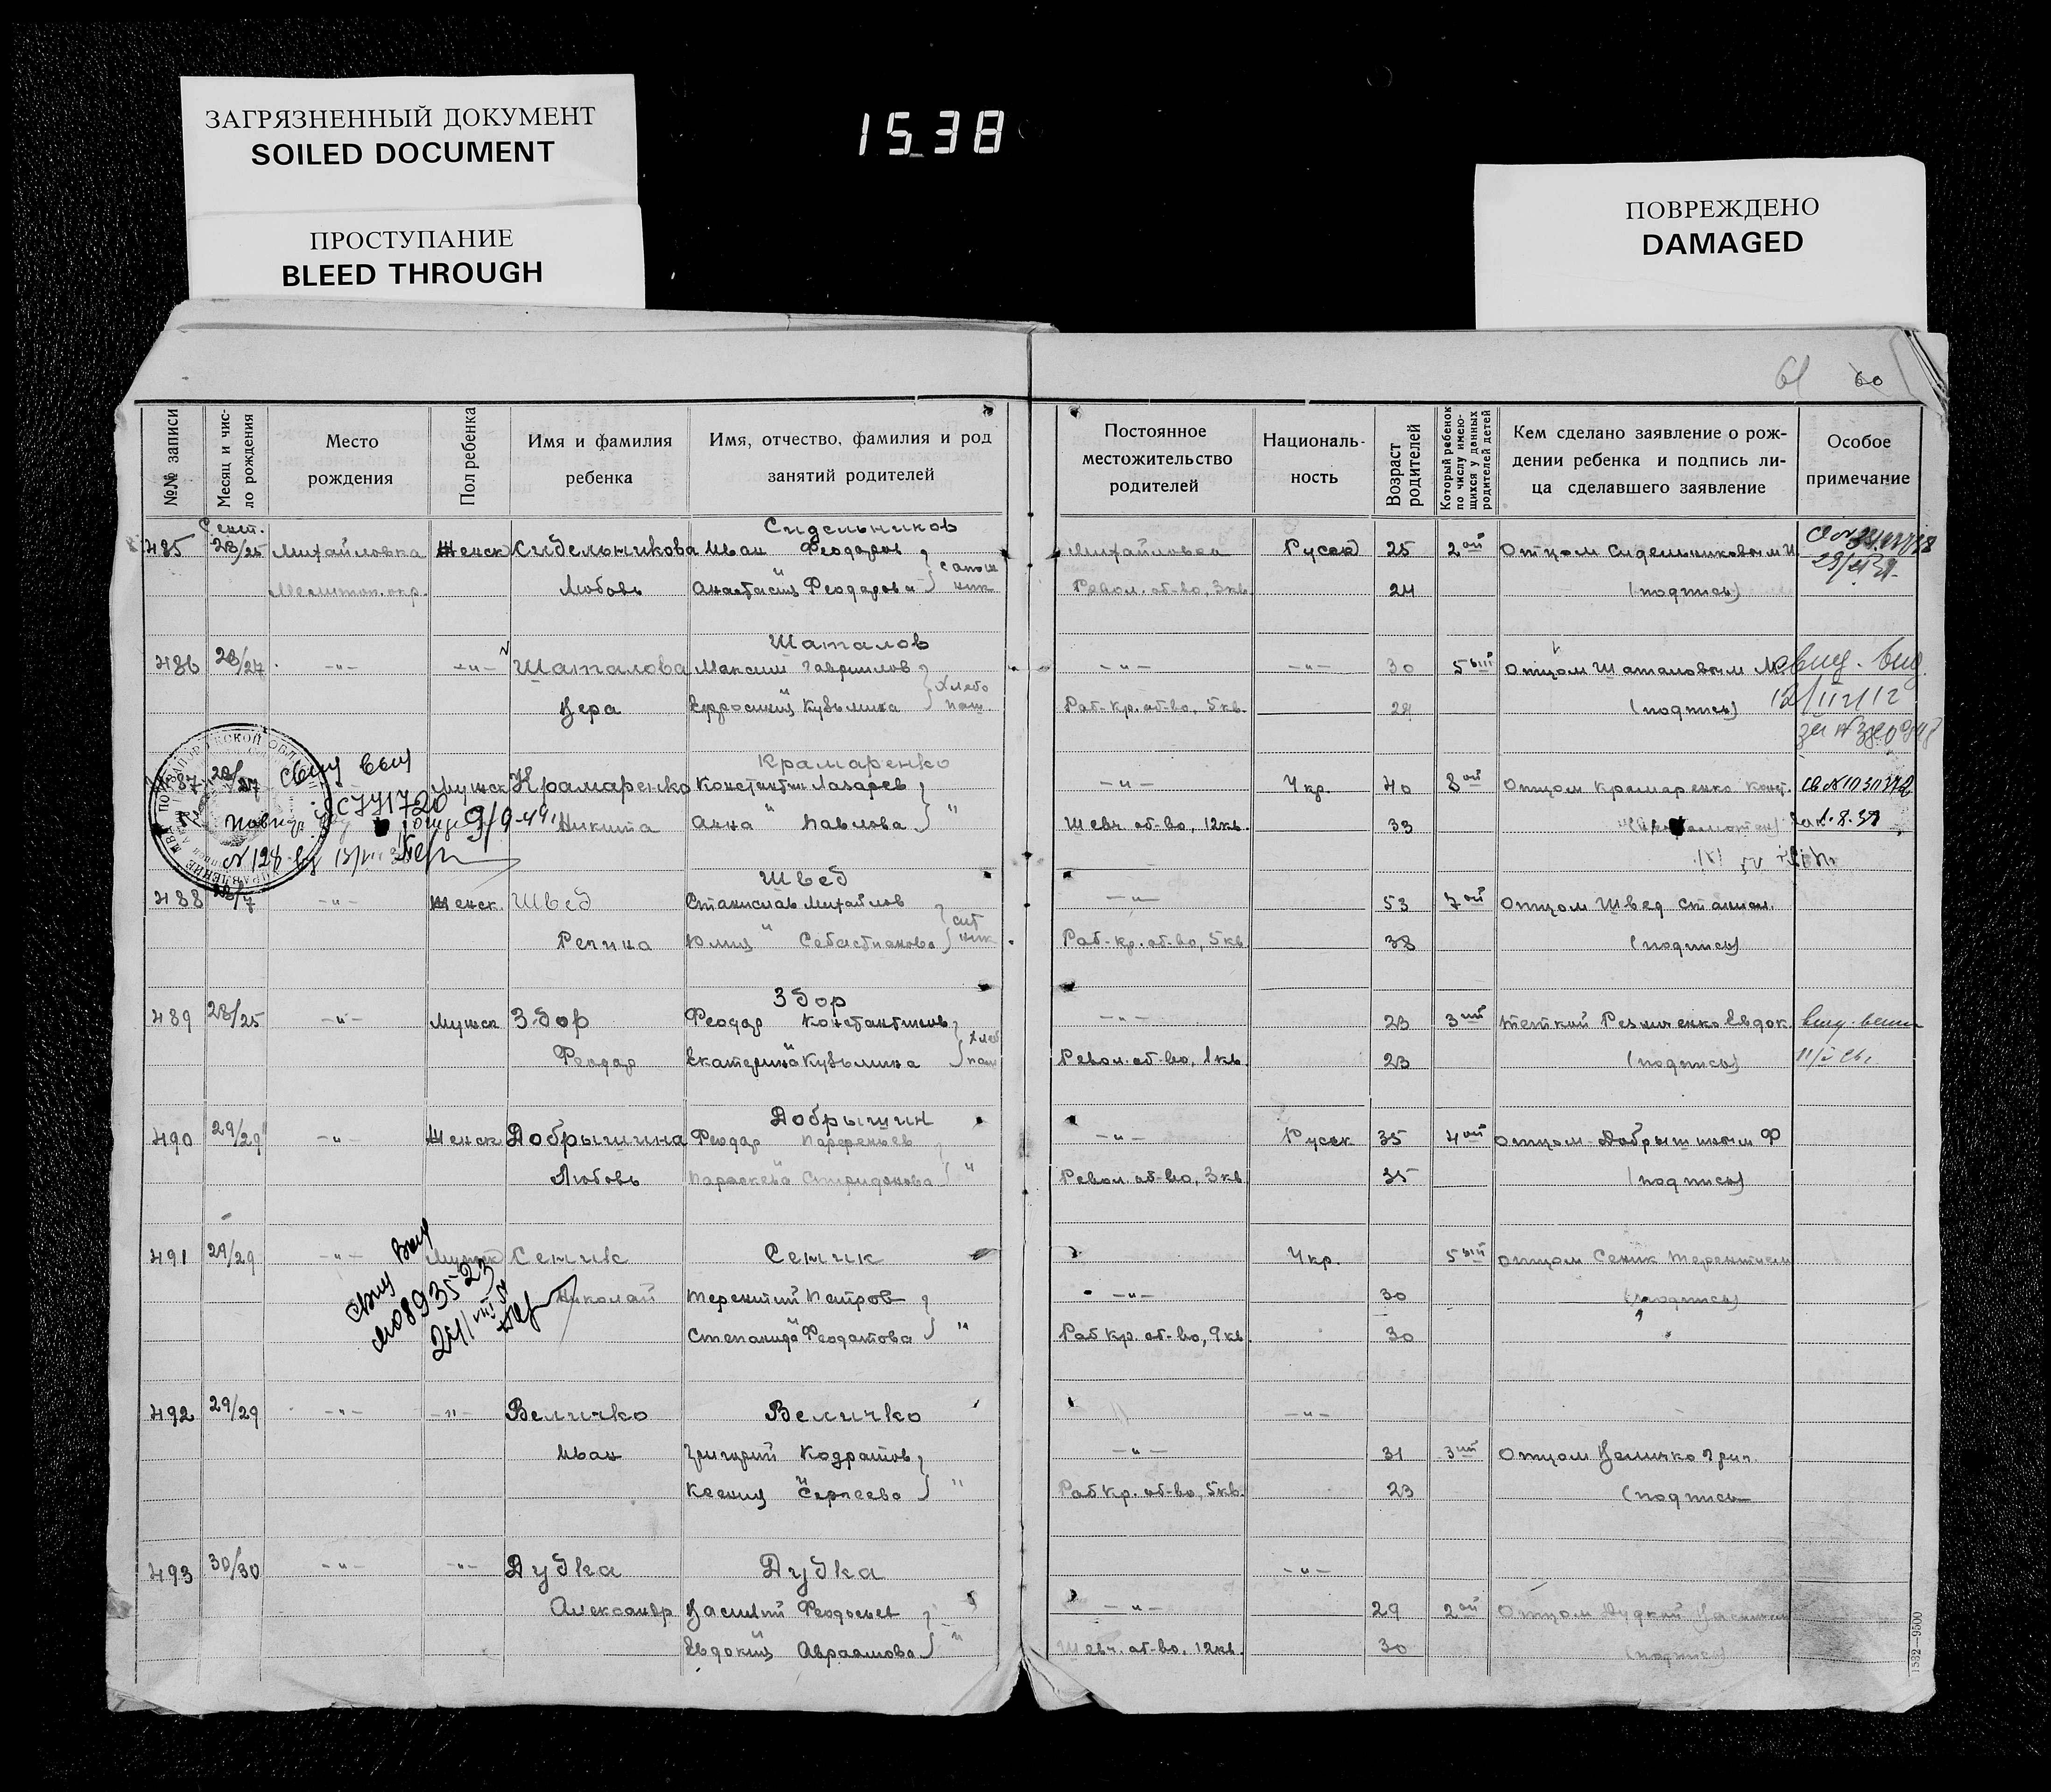 ЗАГРЯЗНЕННЫЙ ДОКУМЕНТ
SOILED DOCUMENT
ПРОСТУПАНИЕ
BLEED THROUGH
15 38
ПОВРЕЖДЕНО
DAMAGED
61 60
№№ записи
Месяц и чис-
ло рождения
Место
рождения
Пол ребенка
Имя и фамилия
ребенка
Имя, отчество, фамилия и род
занятий родителей
Постоянное
местожительство
родителей
Националь-
ность
Возраст
родителей
Который ребенок
по числу имею-
щихся у данных
родителей детей
Кем сделано заявление о рож-
дении ребенка и подпись ли-
ца сделавшего заявление
Особое
примечание
Сент. Сидельников
485 28/25 Михайловка Женск Сидельникова Иван Феодоров Михайловка Русск 25 2ой Отцом Сидельниковым И.
Мелитоп. окр. Любовь Анастасия Феодорова Сапож ник Револ. об-во, 3 кв. 24 (подпись)
Шаталов
486 28/27 -"- -"- Шаталова Максим Гаврилов -"- -"- 30 5ый Отцом Шаталовым М.
Вера Ефросиния Кузьмина Хлебо паш Раб-кр. об-во, 5 кв. 29 (подпись)
Крамаренко
487 28/27 Мужск Крамаренко Константин Лазарев -"- Укр. 40 8ой Отцом Крамаренко Конст.
Никита Анна " Павлова " Шевч. об-во, 12 кв. 33 1.8.39
9/9-49
Швед
488 28/7 -"- Женск. Швед Станислав Михайлов -"- 53 7ой Отцом Швед Станисл.
Регина Юлия " Себастианова Раб-кр. об-во, 5 кв. 38 (подпись)
Збор
489 28/25 -"- Мужск Збор Феодор Константинов -"- 23 3ий теткой Резниченко Евдок.
Феодор Екатерина Кузьмина Хлеб паш Револ. об-во, 1 кв. 23 (подпись)
Добрышин
490 29/29 -"- Женск Добрышина Феодор Парфеньев -"- Русск 35 4ой отцом Добрышиным Ф
Любовь Параскева Спиридонова " Револ. об-во, 3 кв. 35 (подпись)
491 29/29 -"- Мужск Семик Семик Укр. 5ый отцом Семик Терентием
Николай Терентий Петров -"- 30 (подпись)
Степанида Феодотова " Раб кр. об-во, 9 кв. 30
492 29/29 -"- -"- Величко Величко -"-
Иван Григорий Кодратов -"- 31 3ий Отцом Величко Григ.
Ксения " Сергеева " Раб Кр. об-во, 5 кв. 23 (подпись
493 30/30 -"- -"- Дудка Дудка -"-
Александр Василий Феодосьев -"- 29 2ой Отцом Дудкой Василием
Евдокия Авраамова " Шевч. об-во, 12 кв. 30 (подпись)
1582—9500